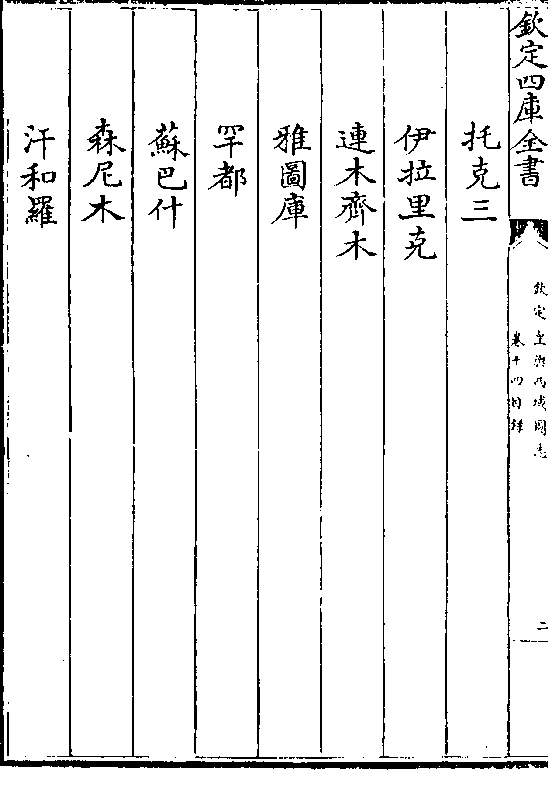 欽定四庫全書
欽定皇輿西域圖志
卷十四目錄
二
托克三
伊拉里克
連木齊木
雅圖庫
罕都
蘇巴什
森尼木
汗和羅